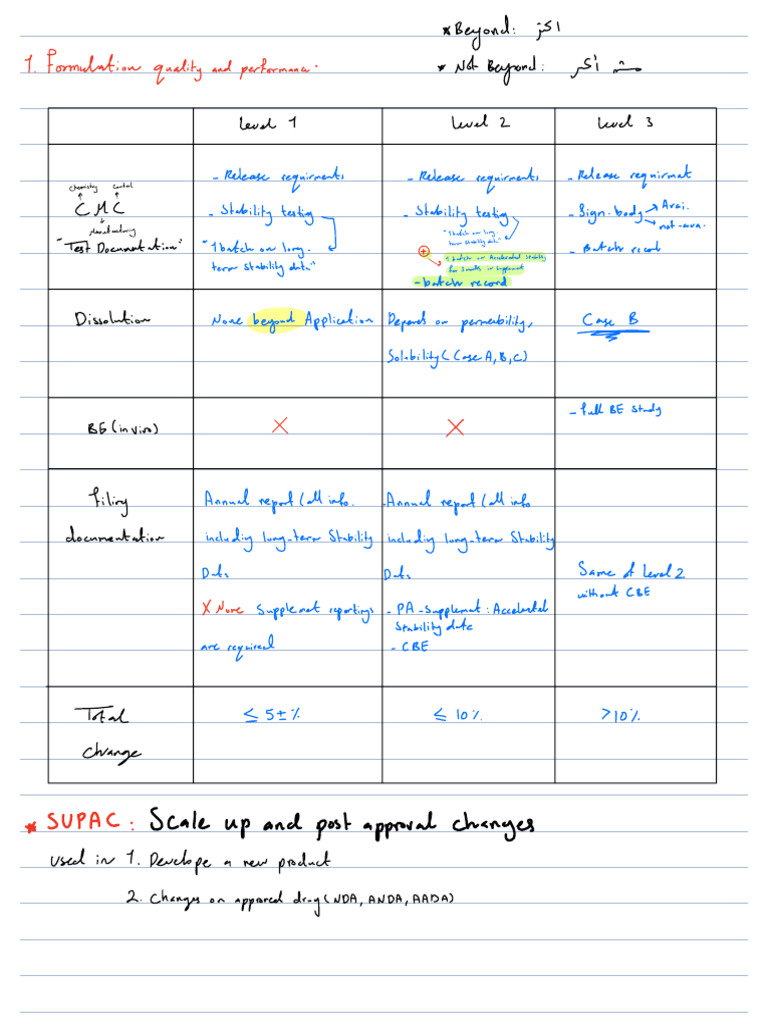 * Beyond: اكثر
1. Formulation quality and performance.
* Not Beyond: مش أكثر
Level 1
Level 2
Level 3
chemistry control
CMC
Manufacturing
"Test Documentation"
- Release requirments
- Stability testing
"1 batch on long-
term stability data"
- Release requirments
- Stability testing
"1 batch on long-
term stability data"
+
1 batch on Accelerated Stability
for 3 months in supplement
- batch record
- Release requirmat
- Sign. body Avai.
not-ava.
- Batch record
Dissolution
None beyond Application
Depends on permeability,
Solability ( Case A, B, C)
Case B
BE (in vivo)
X
X
- full BE study
filing
documentation
Annual report (all info.
including long-term Stability
Data
X None Supplemet reportings
are required
- Annual report (all info
including long-term Stability
Data
- PA-supplemat: Accelerated
Stability data
- CBE
Same of Level 2
without CBE
Total
change
≤ 5±%
≤ 10%
>10%
* SUPAC: Scale up and post approval changes
used in 1. Develope a new product
2. Changes on approved drug (NDA, ANDA, AADA)